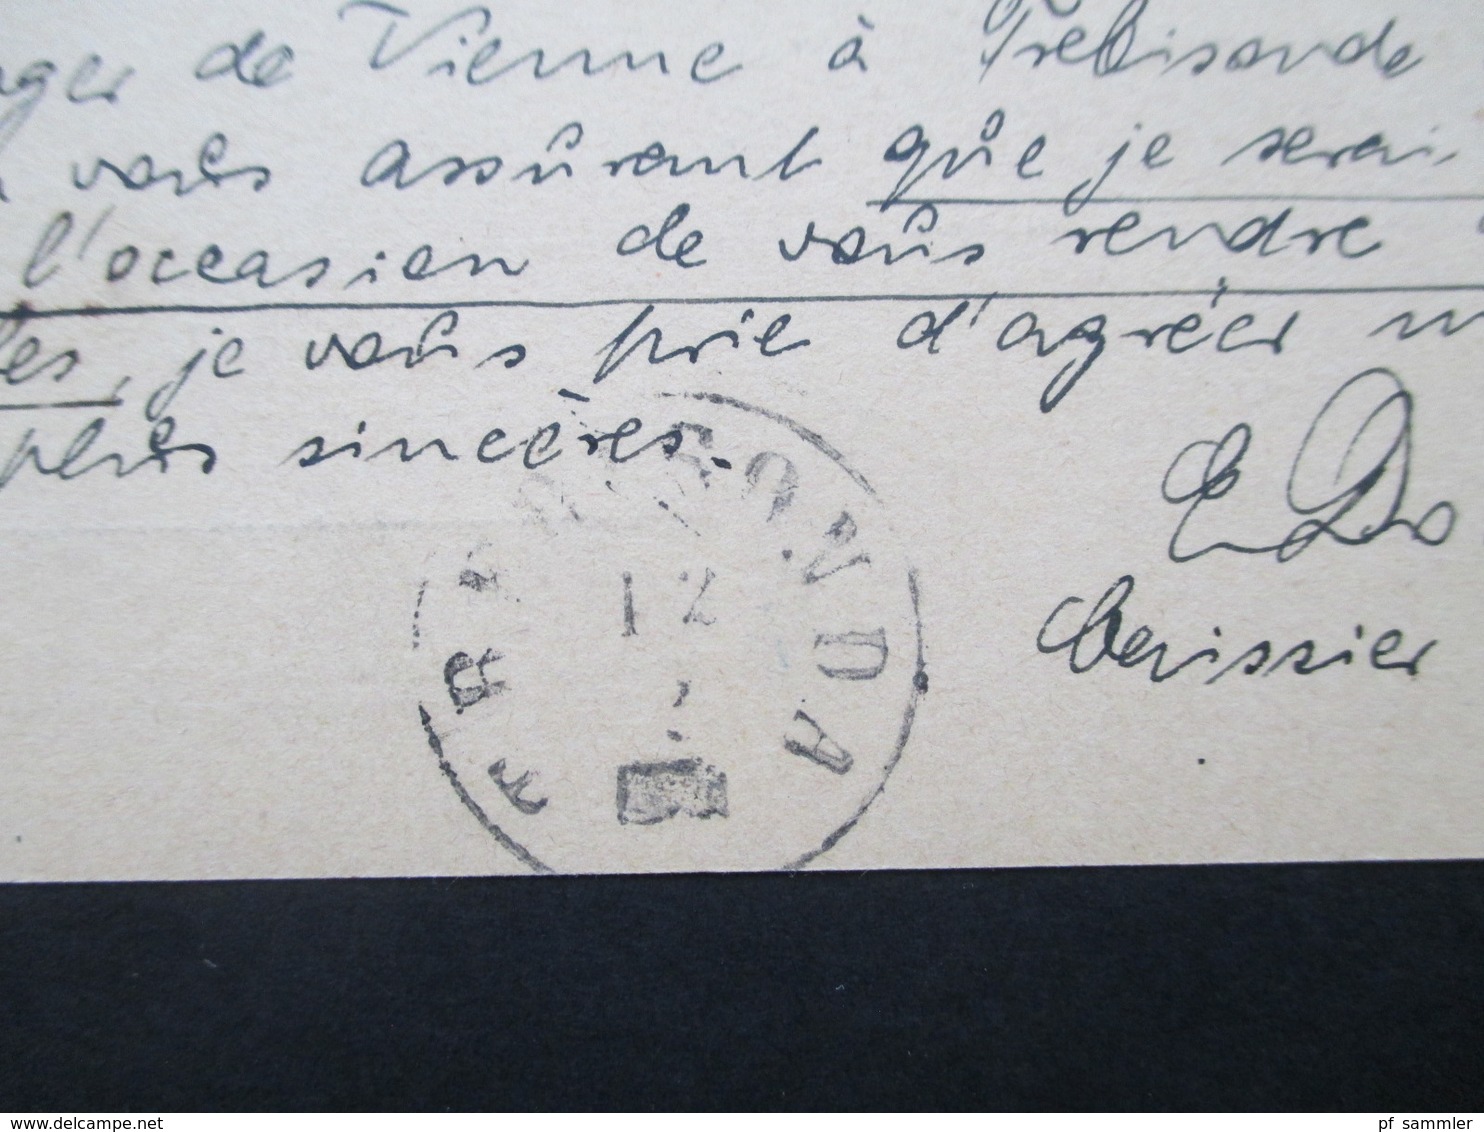 de Vienne à Trebisonde
vous assûrant que je serai
l'occasion de vous rendre
je vous prie d'agréer
plus sincères.
E.
TRAPISONDA
12
delcampe.net
pf_sammler